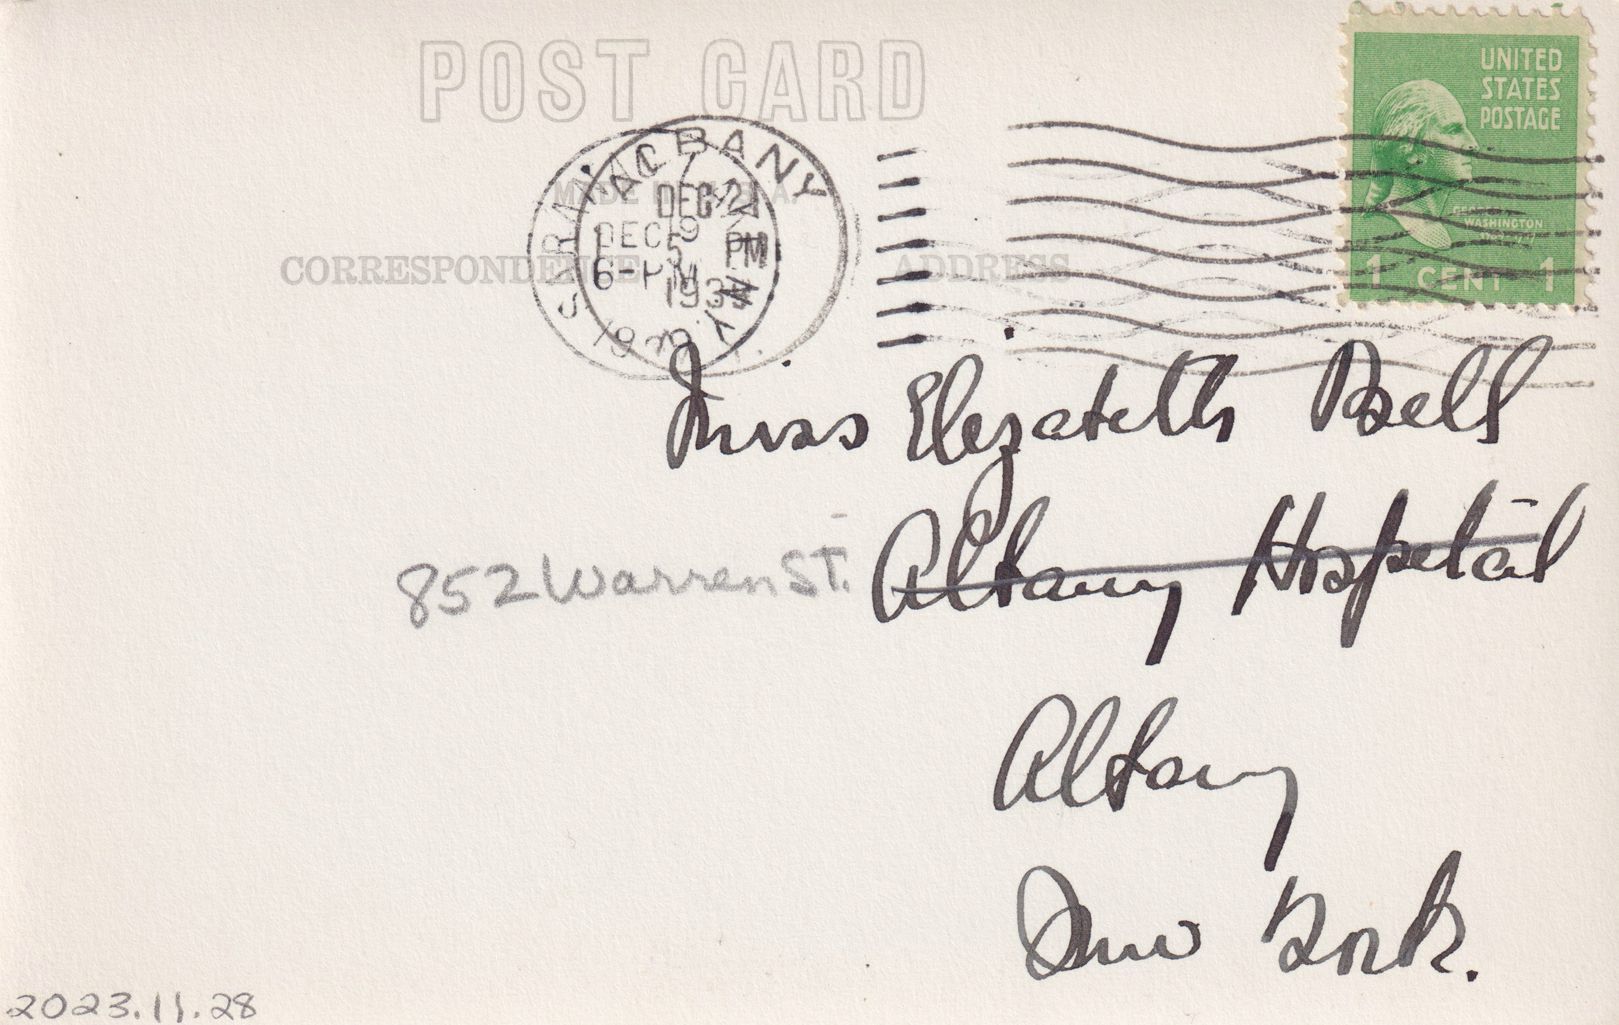 POST CARD
UNITED
STATES
POSTAGE
MADE IN U.S.A.
ALBANY
SARANAC
N.Y.
DEC 21
DEC 19
5 PM
6-PM
1939
CORRESPONDENCE
ADDRESS
WASHINGTON
1 CENT 1
Miss Elizabeth Bell
852 Warren St. Albany Hospital
Albany
New York.
2023.11.28